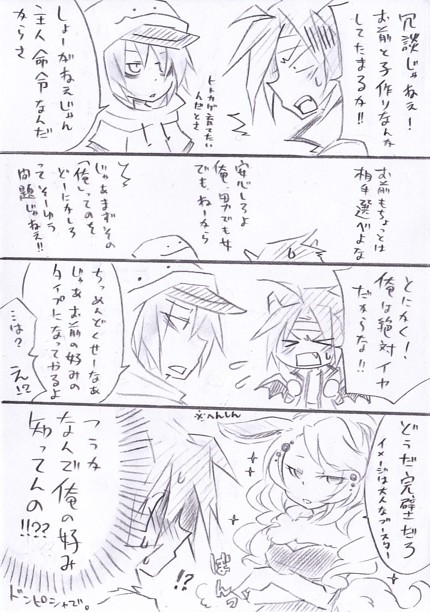 冗談じゃねえ！
お前と子作りなんか
してたまるか!!
しょーがねえじゃん
主人命令なんだ
からさ
んだとさ
お前もちょっとは
相手選べよな
安心しろよ
俺、男でも女
でも、ねーから
じゃあまずその
「俺」ってのを
どーにかしろ
って そーゆう
問題じゃねえ!!
とにかく！
俺は絶対イヤ
だからな!!
ちっめんどくせーなあ
じゃあお前の好みの
タイプになってやるよ
は？
え!?
どうだ完璧だろ
イメージは大人なブースター
※へんしん
ぼんっ
!?
つうか
なんで俺の好み
知ってんの!!??
ドンピシャで。